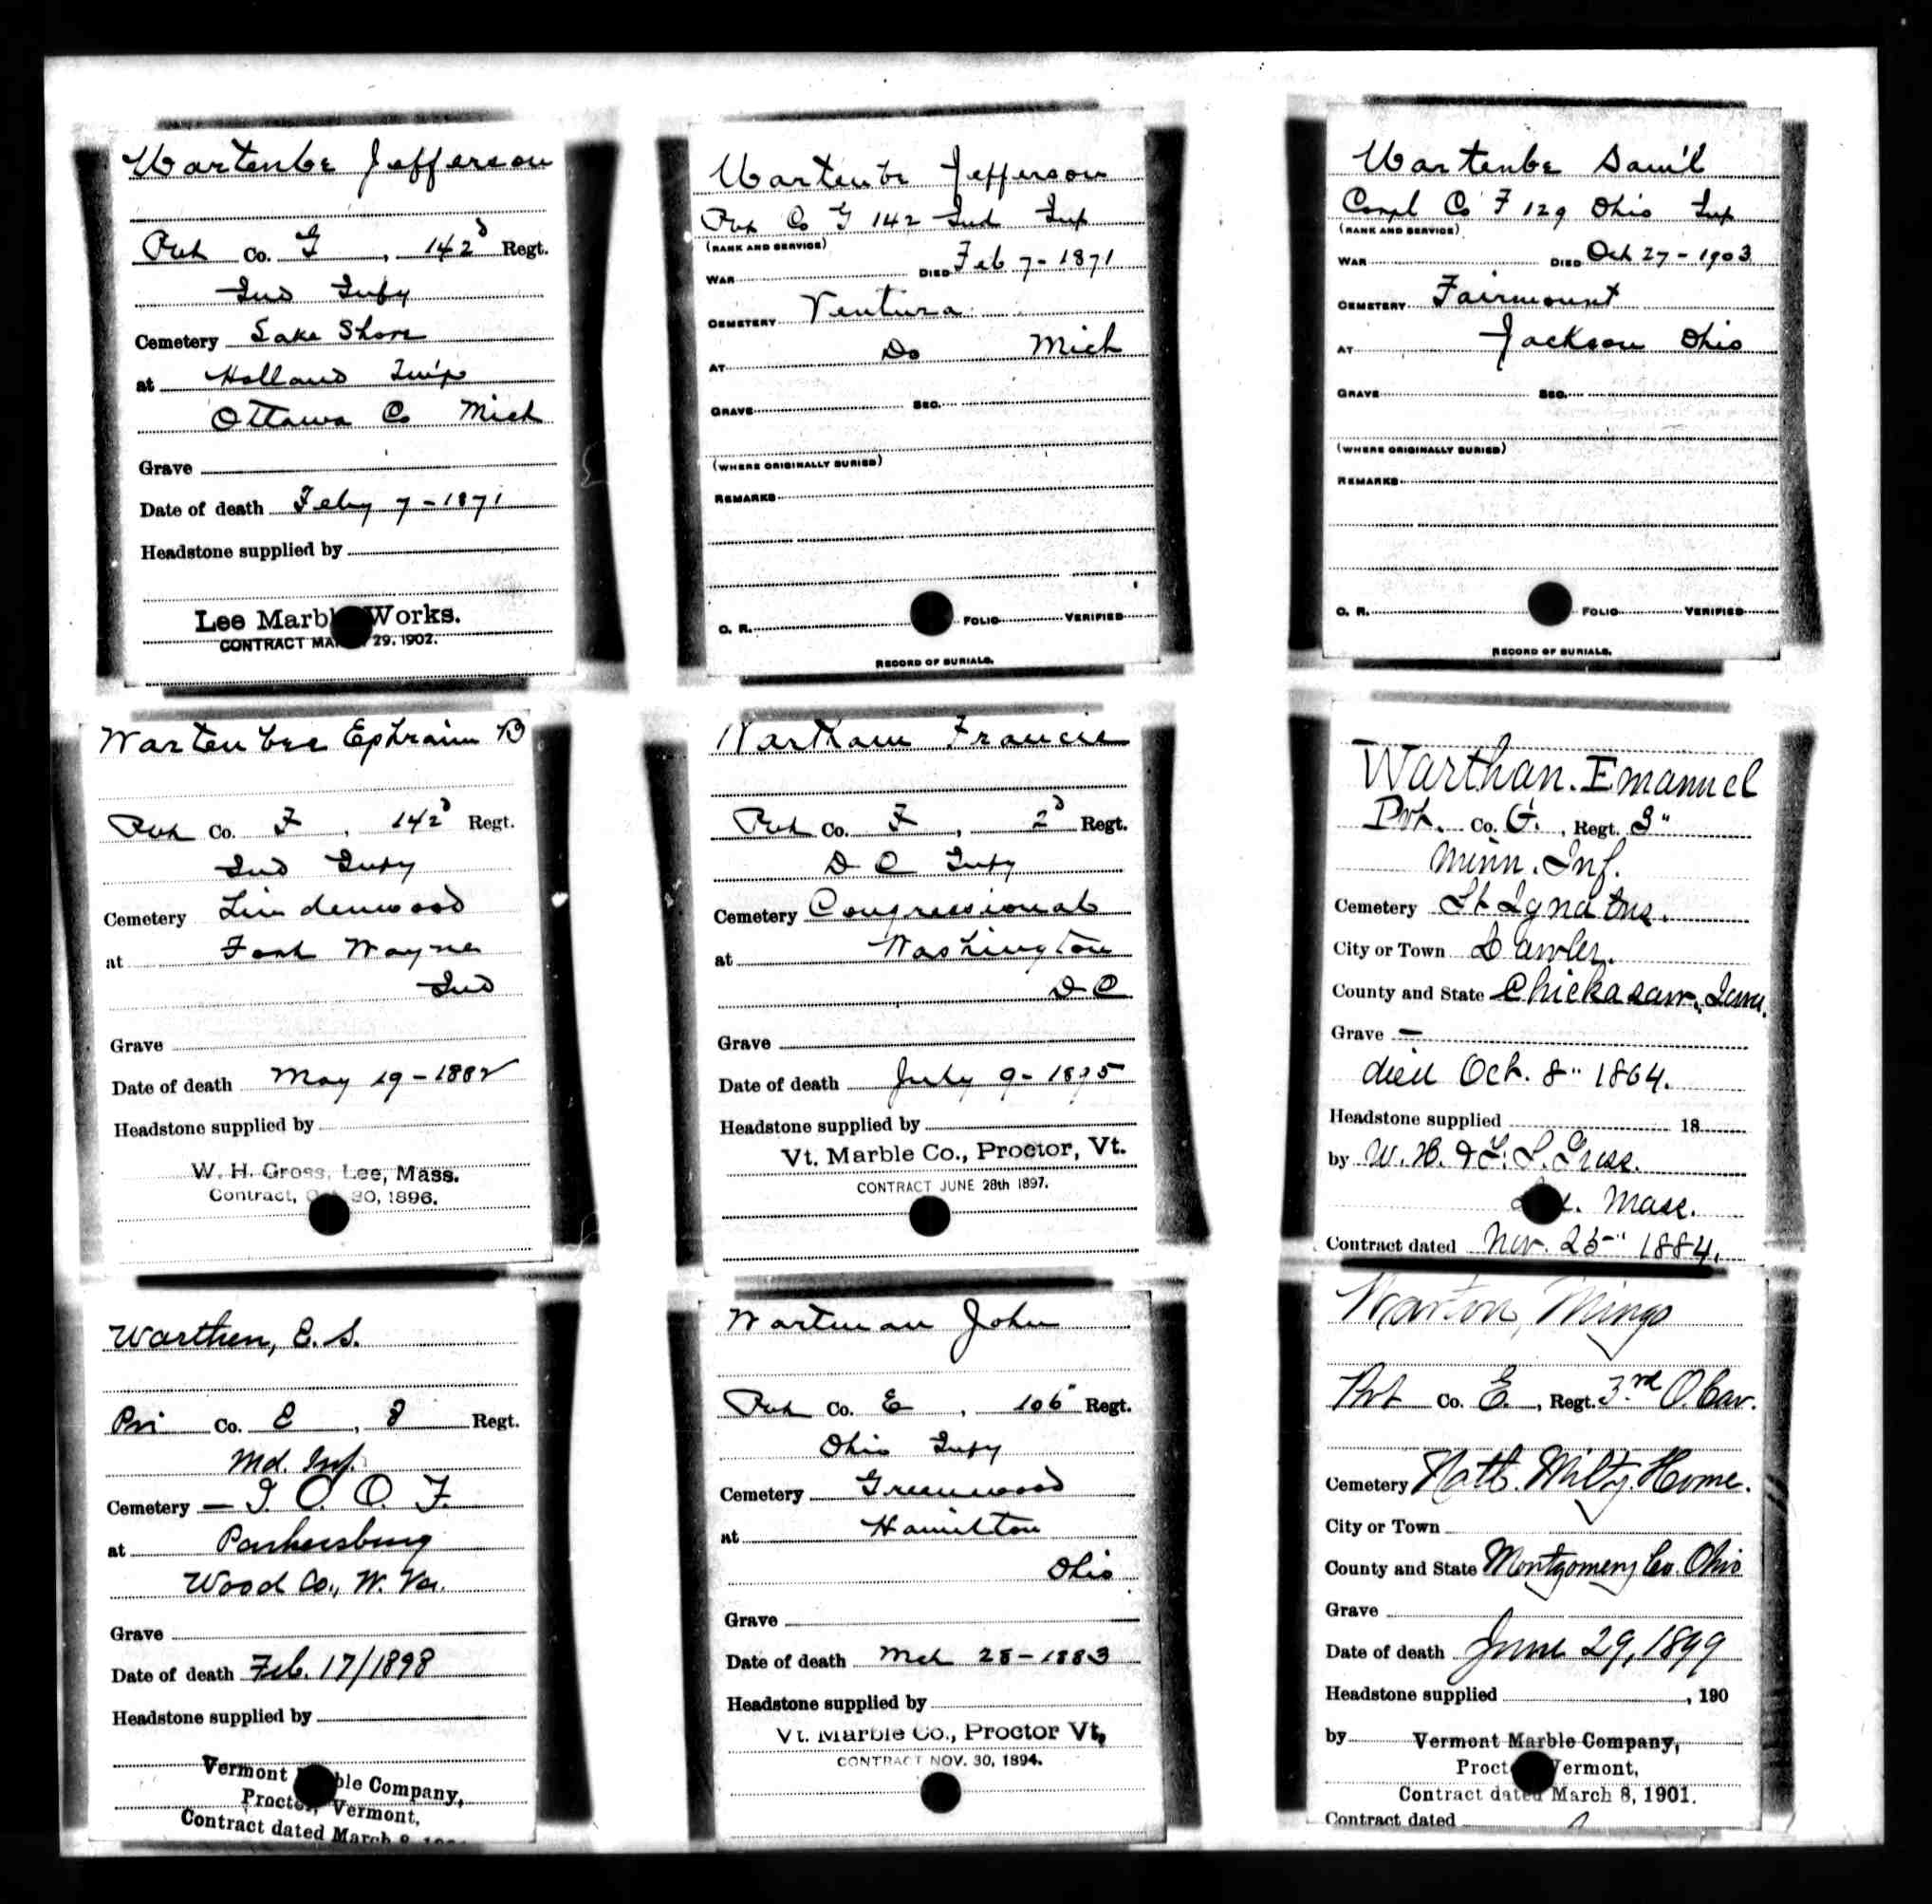 Wartenbe Jefferson
Pvt Co. G, 142d Regt.
Ind Infy
Cemetery Lake Shore
at Holland Twp
Ottawa Co Mich
Grave
Date of death Feby 7-1871
Headstone supplied by
Lee Marble Works.
CONTRACT MA 29, 1902.
Wartenbe Jefferson
Pvt Co G 142 Ind Inf
(RANK AND SERVICE)
WAR DIED Feb 7-1871
CEMETERY Ventura
AT Do Mich
GRAVE SEC.
(WHERE ORIGINALLY BURIED)
REMARKS
O. R. FOLIO VERIFIED
RECORD OF BURIALS.
Wartenbe Sam'l
Corpl Co F 129 Ohio Inf
(RANK AND SERVICE)
WAR DIED Oct 27-1903
CEMETERY Fairmount
AT Jackson Ohio
GRAVE SEC.
(WHERE ORIGINALLY BURIED)
REMARKS
O. R. FOLIO VERIFIED
RECORD OF BURIALS.
Wartenbee Ephraim B
Pvt Co. F, 142d Regt.
Ind Infy
Cemetery Lindenwood
at Fort Wayne
Ind
Grave
Date of death May 19-1882
Headstone supplied by
W. H. Gross, Lee, Mass.
Contract, Oct 30, 1896.
Wartham Francis
Pvt Co. F, 2d Regt.
D C Infy
Cemetery Congressional
at Washington
D C
Grave
Date of death July 9-1895
Headstone supplied by
Vt. Marble Co., Proctor, Vt.
CONTRACT JUNE 28th 1897.
Warthan. Emanuel
Pvt. Co. G., Regt. 3"
Minn. Inf.
Cemetery St Ignatius.
City or Town Lawler.
County and State Chickasaw, Iowa.
Grave —
died Oct. 8" 1864.
Headstone supplied 18
by W. H. & F. S. Gross.
Lee. Mass.
Contract dated Nov. 25" 1884.
Warthen, E. S.
Pri Co. E, 8 Regt.
Md. Inf.
Cemetery — I. O. O. F.
at Parkersburg
Wood Co., W. Va.
Grave
Date of death Feb. 17/1898
Headstone supplied by
Vermont Marble Company,
Proctor, Vermont,
Contract dated March 8,
Wartman John
Pvt Co. E, 106" Regt.
Ohio Infy
Cemetery Greenwood
at Hamilton
Ohio
Grave
Date of death Mch 28-1883
Headstone supplied by
Vt. Marble Co., Proctor Vt,
CONTRACT NOV. 30, 1894.
Warton, Mingo
Pvt Co. E., Regt. 3rd O. Cav.
Cemetery Natl. Milty. Home.
City or Town
County and State Montgomery Co. Ohio
Grave
Date of death June 29, 1899
Headstone supplied , 190
by Vermont Marble Company,
Proctor, Vermont,
Contract dated March 8, 1901.
Contract dated